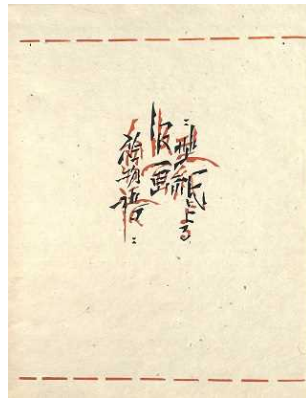 型紙による
版画
絵物語